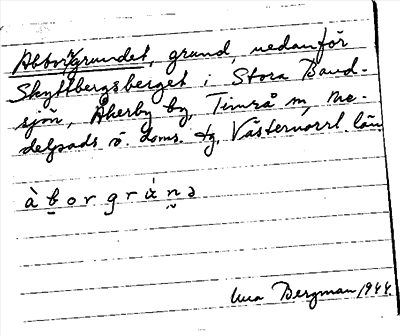 Abborrgrundet, grund, nedanför
Skyttbergsberget i Stora Band-
sjön, Åkerby by, Timrå sn, Me-
delpads ö. doms. tg, Västernorrl. län.
à b̬ o r g r á n̬ ə
Bergman 1944.